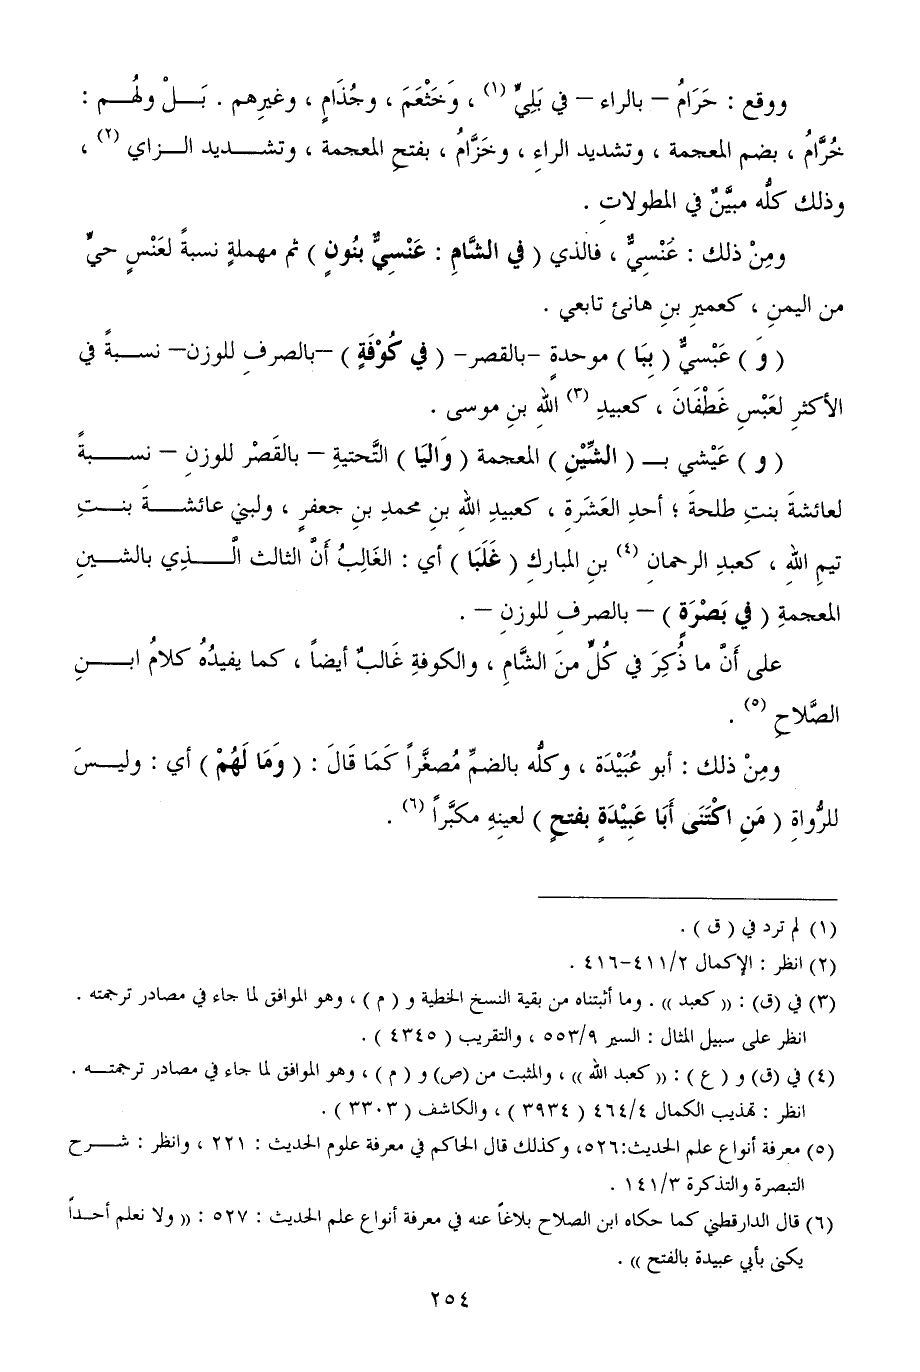 ووقع : حَرَامُ – بالراء – في بَلِيٍّ (١) ، وَخَثْعَمَ ، وجُذَامٍ ، وغيرِهم . بَـــلْ ولَهُــم :
خُرَّامُ ، بضم المعجمة ، وتشديد الراءِ ، وخَزَّامُ ، بفتحِ المعجمة ، وتشـــديد الـــزاي (٢) ،
وذلك كلُّه مبيَّنٌ في المطولاتِ .
ومِنْ ذلك : عَنْسِيٌّ ، فالذي ( في الشَّامِ : عَنْسِيٌّ بنُونٍ ) ثم مهملةٍ نسبةً لعَنْسٍ حيٍّ
من اليمنِ ، كعميرِ بنِ هانئ تابعي .
( وَ ) عَبْسيٌّ ( بِبَا ) موحدةٍ -بالقصر- ( في كُوْفَةٍ ) –بالصرفِ للوزن– نســـبةً في
الأكثرِ لعَبْسِ غَطْفَانَ ، كعبيدِ (٣) اللهِ بنِ موسى .
( و ) عَيْشي بـ ( الشِّيْنِ ) المعجمة ( وَاليَا ) التَّحتيةِ – بالقَصْر للوزنِ – نســـبةً
لعائشةَ بنتِ طلحةَ ؛ أحدِ العَشَرَة ، كعبيدِ اللهِ بنِ محمدِ بنِ جعفرٍ ، ولبني عائشـــةَ بنـــتِ
تيمِ اللهِ ، كعبدِ الرحمان (٤) بنِ المباركِ ( غَلَبَا ) أي : الغَالبُ أنَّ الثالث الَّـــذي بالشـــينِ
المعجمةِ ( في بَصْرَةٍ ) – بالصرفِ للوزنِ – .
على أَنَّ ما ذُكِرَ في كُلٍّ منَ الشَّامِ ، والكوفةِ غَالبٌ أيضاً ، كما يفيدُهُ كلامُ ابـــنِ
الصَّلاحِ (٥) .
ومِنْ ذلك : أبو عُبَيْدَة ، وكلُّه بالضمِّ مُصغَّراً كَمَا قَالَ : ( وَمَا لَهُمْ ) أي : وليـــسَ
للرُّواةِ ( مَنِ اكْتَنَى أبَا عَبِيْدَةٍ بفتحٍ ) لعينِهِ مكبَّراً (٦) .
(١) لم ترد في ( ق ) .
(٢) انظر : الإكمال ٤١١/٢–٤١٦ .
(٣) في (ق) : (( كعبد )) . وما أثبتناه من بقية النسخ الخطية و ( م ) ، وهو الموافق لما جاء في مصادر ترجمته .
انظر على سبيل المثال : السير ٥٥٣/٩ ، والتقريب ( ٤٣٤٥ ) .
(٤) في (ق) و ( ع ) : (( كعبد الله )) ، والمثبت من (ص) و ( م ) ، وهو الموافق لما جاء في مصادر ترجمتـــه .
انظر : تهذيب الكمال ٤٦٤/٤ ( ٣٩٣٤ ) ، والكاشف ( ٣٣٠٣ ) .
(٥) معرفة أنواع علم الحديث:٥٢٦، وكذلك قال الحاكم في معرفة علوم الحديث : ٢٢١ ، وانظر : شـــرح
التبصرة والتذكرة ١٤١/٣ .
(٦) قال الدارقطني كما حكاه ابن الصلاح بلاغاً عنه في معرفة أنواع علم الحديث : ٥٢٧ : (( ولا نعلم أحـــداً
يكنى بأبي عبيدة بالفتح )) .
٢٥٤